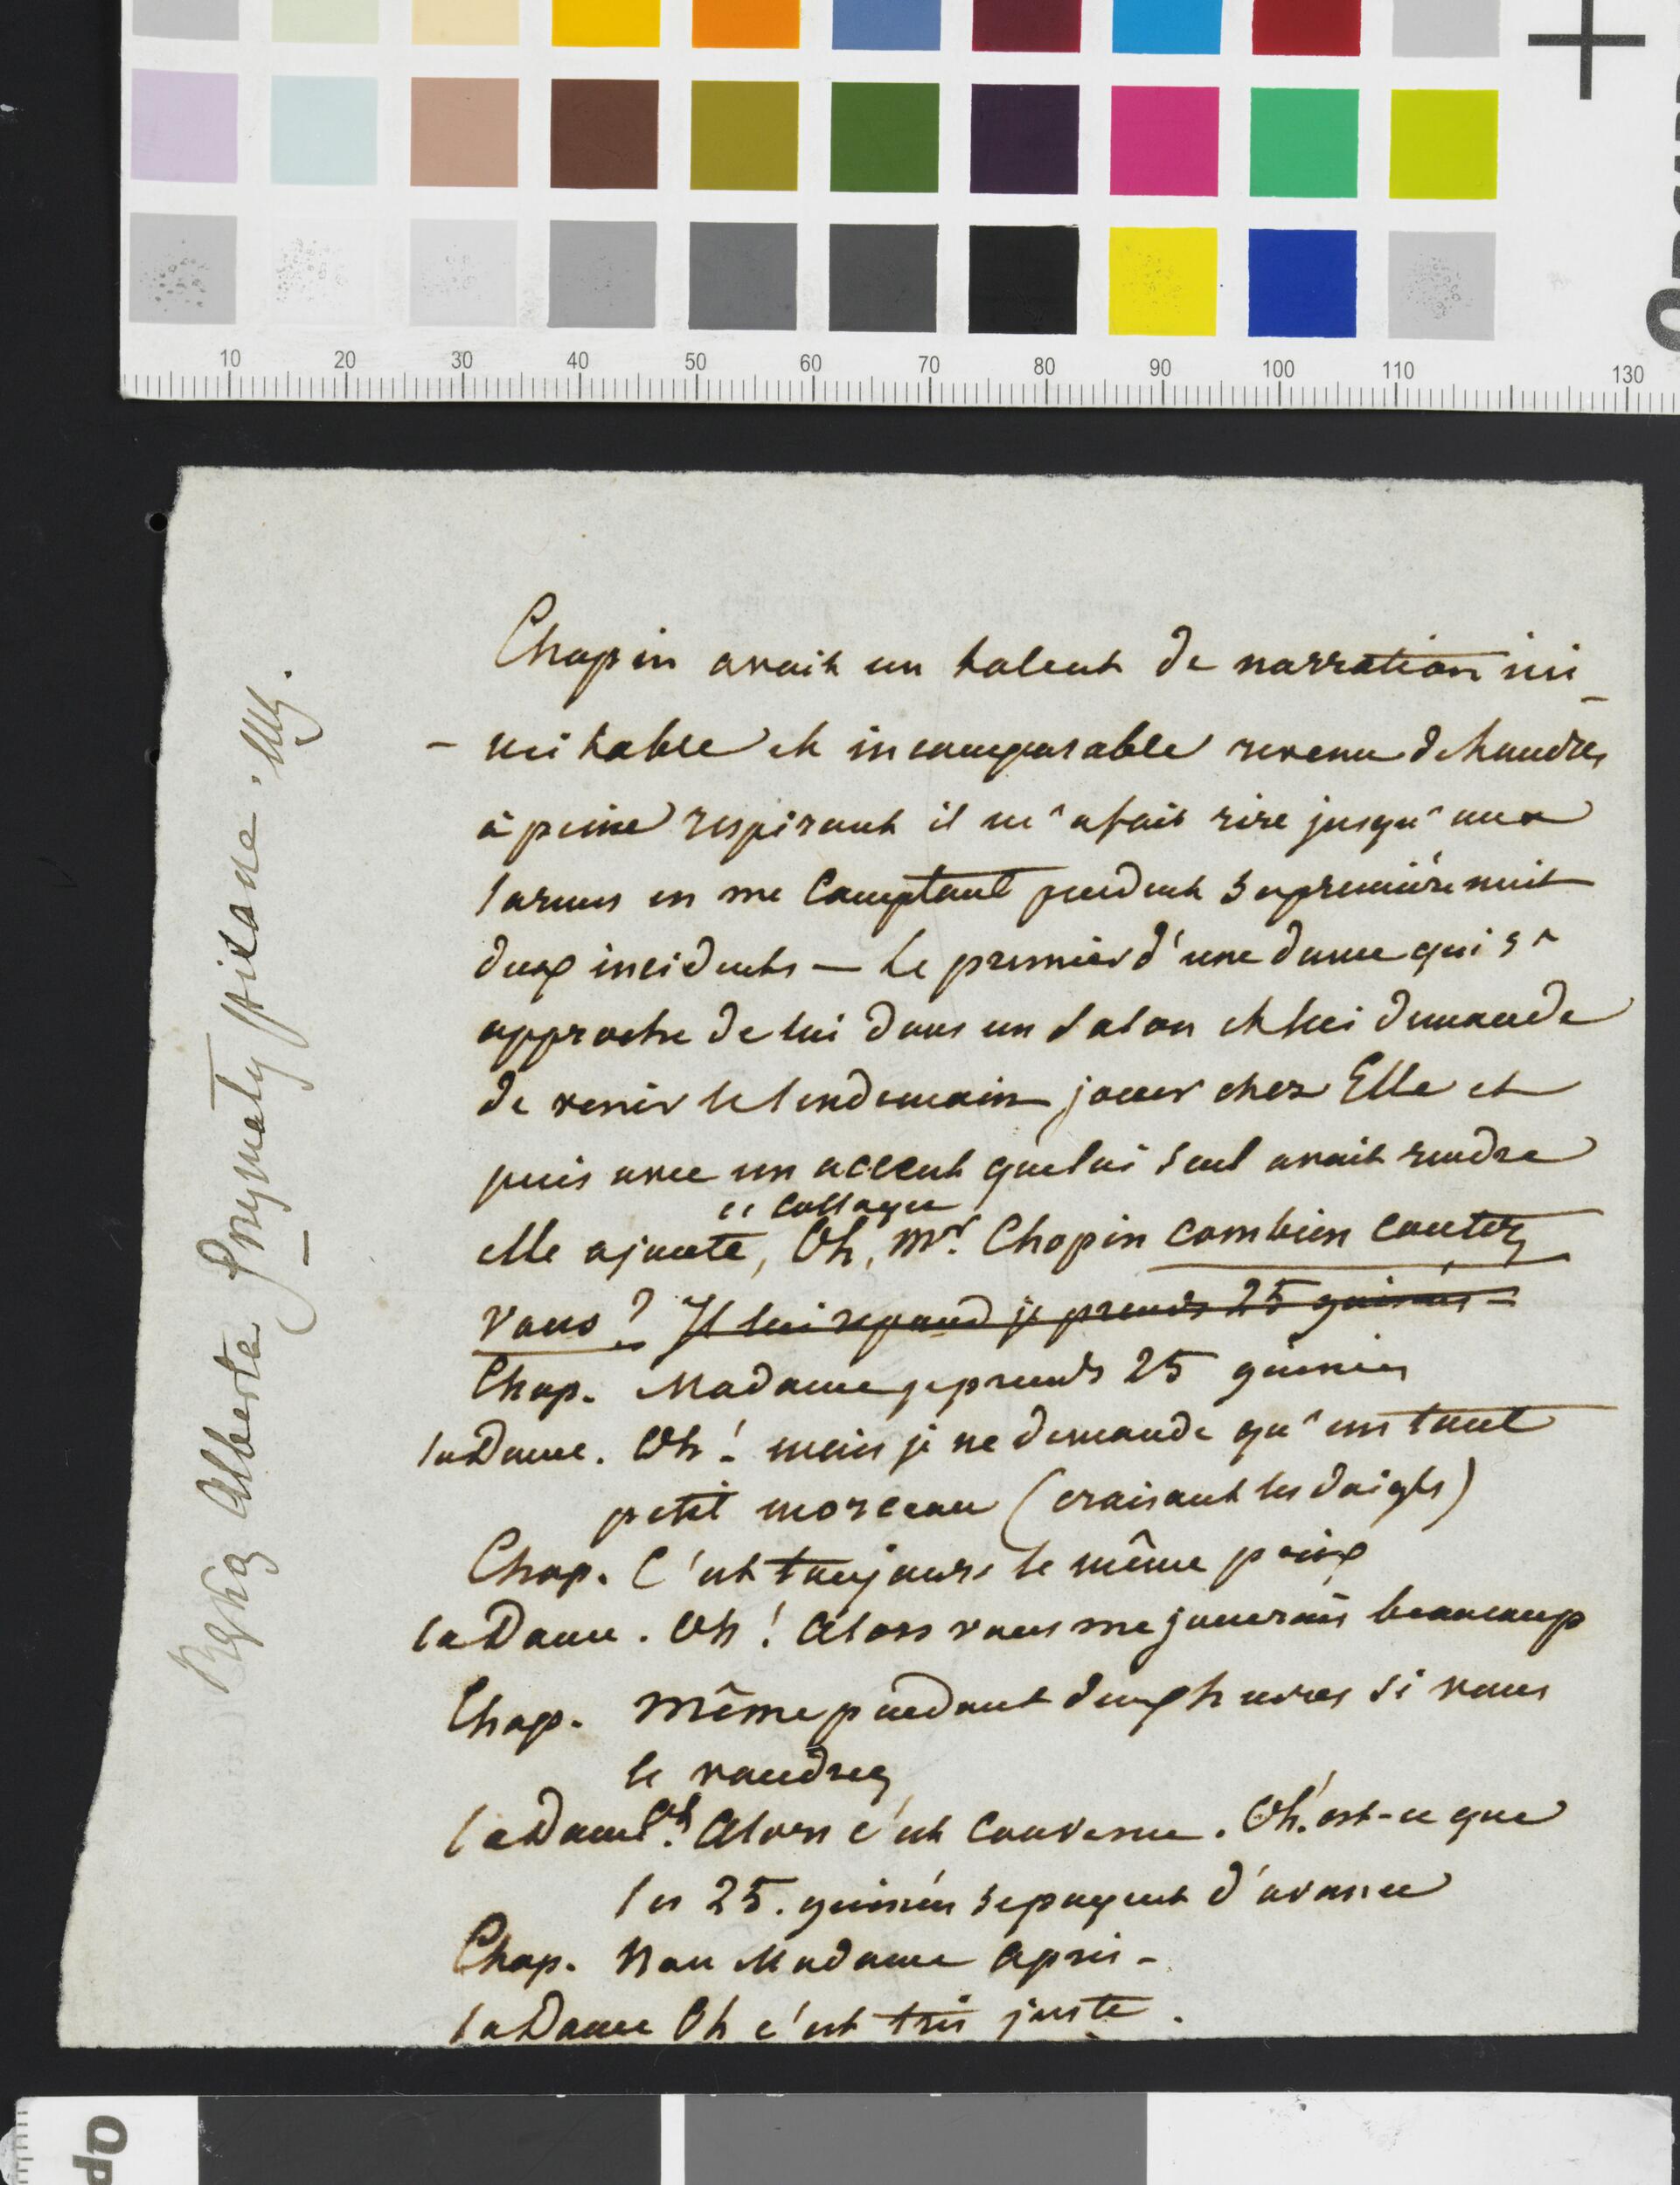 10 20 30 40 50 60 70 80 90 100 110 130
Chopin avait un talent de narration ini
- mitable et incomparable revenu de Londres
à peine respirant il m'a fait rire jusqu'aux
larmes en me comptant pendant sa première nuit
deux incidents — Le premier d'une dame qui s'
approche de lui dans un Salon et lui demande
de venir le lendemain jouer chez Elle et
puis avec un accent que lui seul avait rendre
elle ajoute, Oh, Mr. Chopin combien coutez
vous ? Il lui repond je prends 25 guinées -
Chop. Madame je prends 25 guinées
la Dame. Oh ! mais je ne demande qu'un tout
petit morceau (croisant les doigts)
Chop. C'est toujours le même prix
la Dame. Oh ! Alors vous me jouerais beaucoup
Chop. Même pendant deux heures si vous
le voudrez
la Dame. Oh! Alors c'est convenu. Oh! est-ce que
les 25. guinées se payent d'avance
Chop. Non Madame Après -
la Dame Oh c'est très juste.
Ręką Alberta Grzymały pisane.